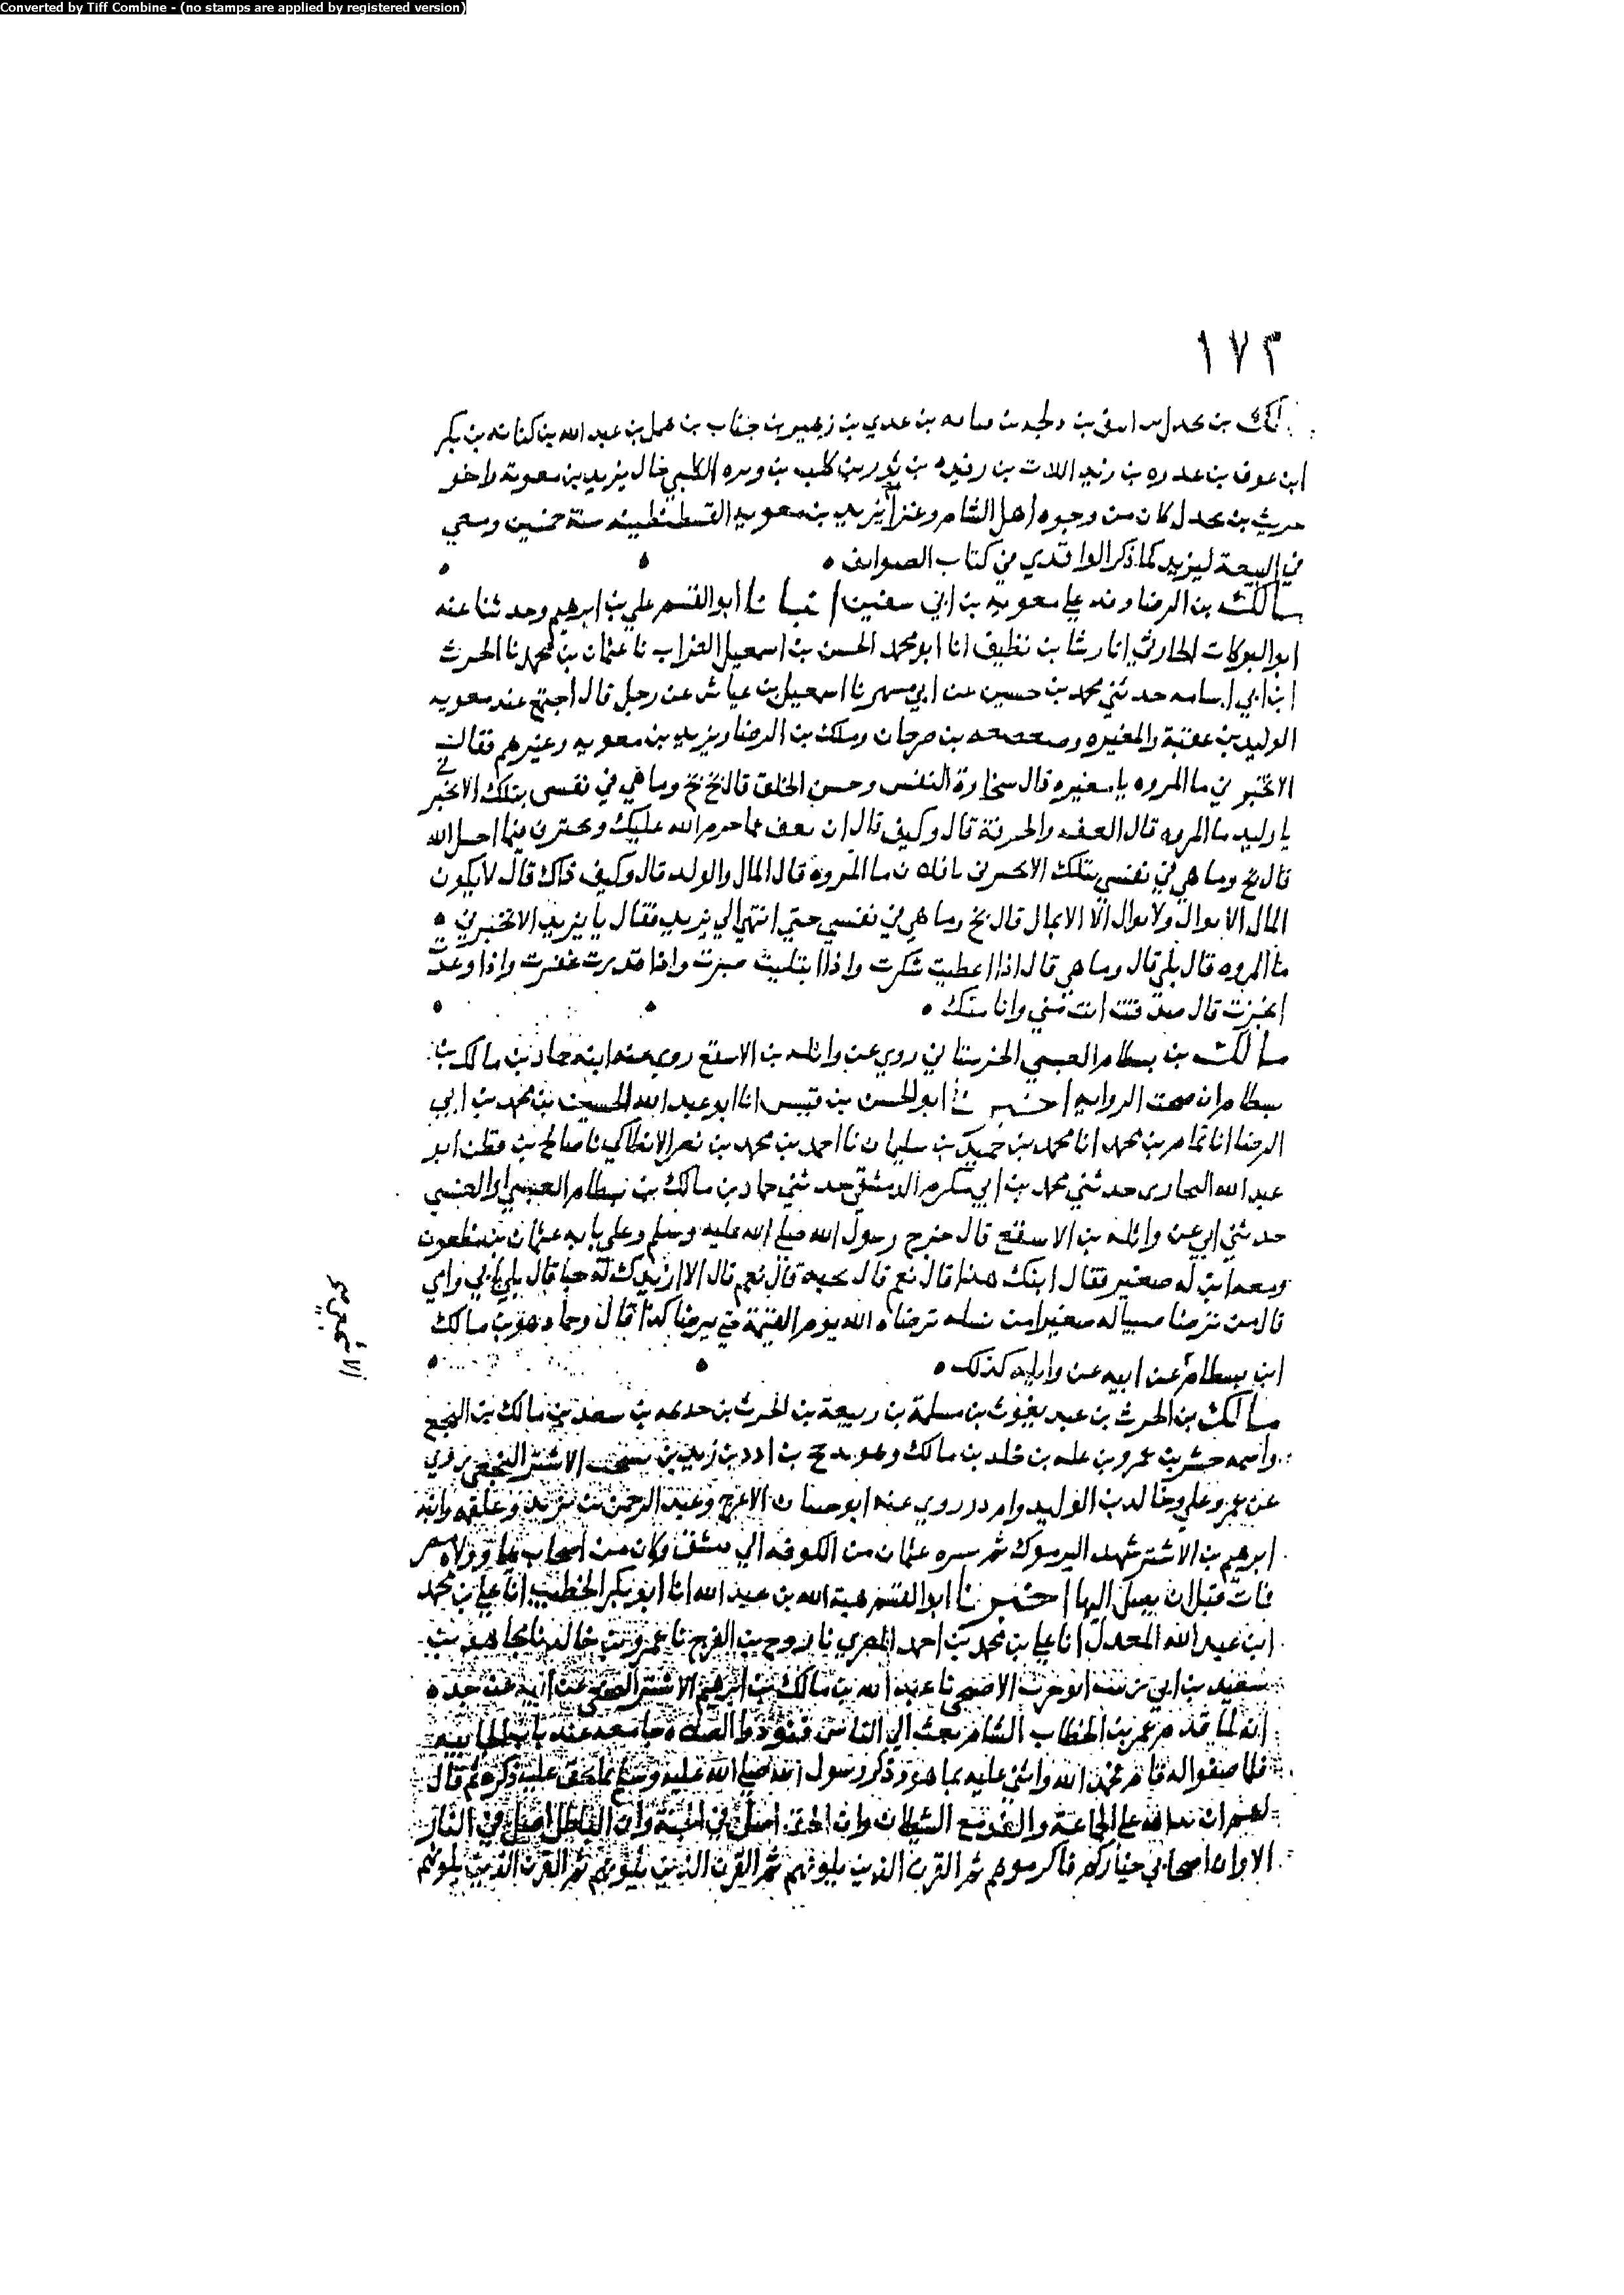 Converted by Tiff Combine - (no stamps are applied by registered version)
١٧٣
مالك بن بحدل بن انيف بن دلجه بن عدي بن زهير بن جناب بن هبل بن عبد الله بن كنانه بن بكر
ابن عوف بن عدره بن زيد اللات بن رفيده بن ثور بن كلب بن وبره الكلبي خال يزيد بن معوية واخو
حريث بن بحدل كان من وجوه اهل الشام وغزا يزيد بن معويه القسطنطينيه سنة خمسين وسعي
في البيعة ليزيد كما ذكر الواقدي في كتاب الصوايف
مالك بن الرضا وفد علي معويه بن ابي سفين انبانا ابو القسم علي بن ابرهيم وحدثنا عنه
ابو البركات الحارثي انا رشا بن نظيف انا ابو محمد الحسن بن اسمعيل الضراب نا عثمان بن محمد نا الحرث
ابن ابي اسامه حدثني محمد بن حسين عن ابي مسهر نا اسمعيل بن عياش عن رجل قال اجتمع عند معويه
الوليد بن عقبة والمغيره وصعصعه بن صوحان وملك بن الرضا ويزيد بن معويه وغيرهم فقال
الا تخبرني ما المروه يا مغيره قال سخاوة النفس وحسن الخلق قال بخ بخ وما هي في نفسي بتلك الا تخبرني
يا وليد ما المروه قال العفه والحرفة قال وكيف قال ان تعف مما حرم الله عليك وتحترف فيما احل الله
قال بخ وما هي في نفسي بتلك الا تخبرني يا فلان ما المروة قال المال والولد قال وكيف ذاك قال لا يكون
المال الا قال بخ وما هي في نفسي حتي انتهي الي يزيد فقال يا يزيد الا تخبرني
ما المروه قال بلي قال وما هي قال اذا اعطيت شكرت واذا ابتليت صبرت واذا قدرت غفرت واذا وعدت
انجزت قال صدقت انت مني وانا منك
مالك بن بسطام العبسي الحرستاني روي عن واثله بن الاسقع روي عنه ابنه حماد بن مالك بن
بسطام ان صحت الروايه اخبرنا ابو الحسن بن قبيس انا ابو عبد الله الحسين بن محمد بن ابي
الرضا انا تمام بن محمد انا محمد بن حميد بن سليمان نا احمد بن محمد بن نصر الانطاكي نا صالح بن قطن ابو
عبد الله البخاري حدثني محمد بن ابي سكره الدمشقي حدثني حماد بن مالك بن بسطام العبسي او العنسي
حدثني ابي عن واثله بن الاسقع قال خرج رسول الله صلي الله عليه وسلم وعلي بابه عثمان بن مظعون
ومعه ابن له صغير فقال ابنك هذا قال نعم قال تحبه قال نعم قال الا ازيدك له حبا قال بلي بابي وامي
قال من ترضا صبيا له صغيرا من نسله ترضاه الله يوم القيمة حتي يرضا كذا قال وحماد هو بن مالك
ابن بسطام عن ابيه عن واثله كذلك
مالك بن الحرث بن عبد يغوث بن مسلمة بن ربيعة بن الحرث بن جديمه بن سعد بن مالك بن النخع
واسمه جسر بن عمرو بن عله بن خلد بن مالك وهو مدحج بن ادد بن زيد بن يشجب الاشتر النخعي روي
عن عمر وعلي وخالد بن الوليد وام در روي عنه ابو حسان الاعرج وعبد الرحمن بن يزيد وعلقمه وابنه
ابرهيم بن الاشتر شهد اليرموك ثم سيره عثمان من الكوفه الي دمشق وكان من اصحاب علي وولاه مصر
فمات قبل ان يصل اليها اخبرنا ابو القسم هبة الله بن عبد الله انا ابو بكر الخطيب انا علي بن محمد
ابن عبد الله المعدل انا علي بن محمد بن احمد المصري نا روح بن الفرج نا عمرو بن خالد نا مجاهد بن
سعيد بن ابي زينب ابو حرب الاصبحي نا عبد الله بن مالك بن ابرهيم الاشتر النخعي عن ابيه عن جده
انه لما قدم عمر بن الخطاب الشام بعث الي الناس فنودوا الصلاه جامعه عند باب الجابيه
فلما صفوا له قام فحمد الله واثني عليه بما هو وذكر رسول الله صلي الله عليه وسلم بما يحق عليه ذكره ثم قال
لهم ان يد الله علي الجماعة والفد مع الشيطان وان الحق اصل في الجنة وان الباطل اصل في النار
الا وان اصحابي خياركم فاكرموهم ثم القرن الذين يلونهم ثم القرن الذين يلونهم ثم القرن الذين يلونهم